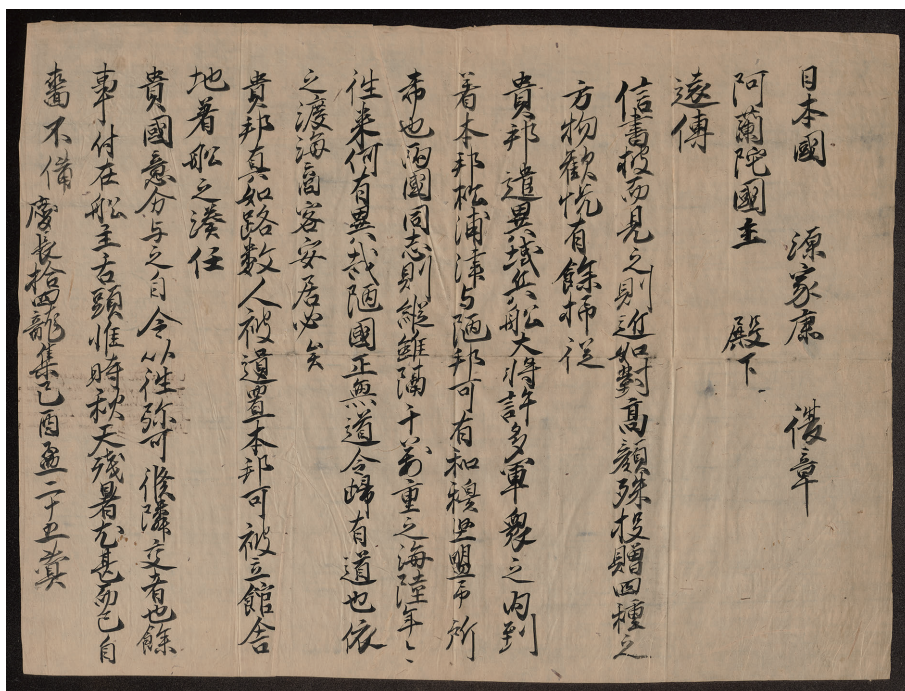 日本國　源家康　復章
阿蘭陀國主　殿下
遠傳
信書披而見之則近如對高顔殊投贈四種之
方物歓悦有餘抑従
貴邦遣異域兵船大将許多軍衆之内到
着本邦松浦津与陋邦可有和親並盟吊所
希也両國同志則縦雖隔千萬重之海陸年々
往来何有異哉陋國正無道令帰有道也依
之渡海自客安居必矣
貴邦真如路数人被遣置本邦可被立館舎
地着船之湊任
貴國意分与之自今以往弥可修隣交者也餘
事付在船主舌頭惟時秋天残暑尤甚而已自
嗇不備
慶長拾四龍集己酉孟二十五蓂